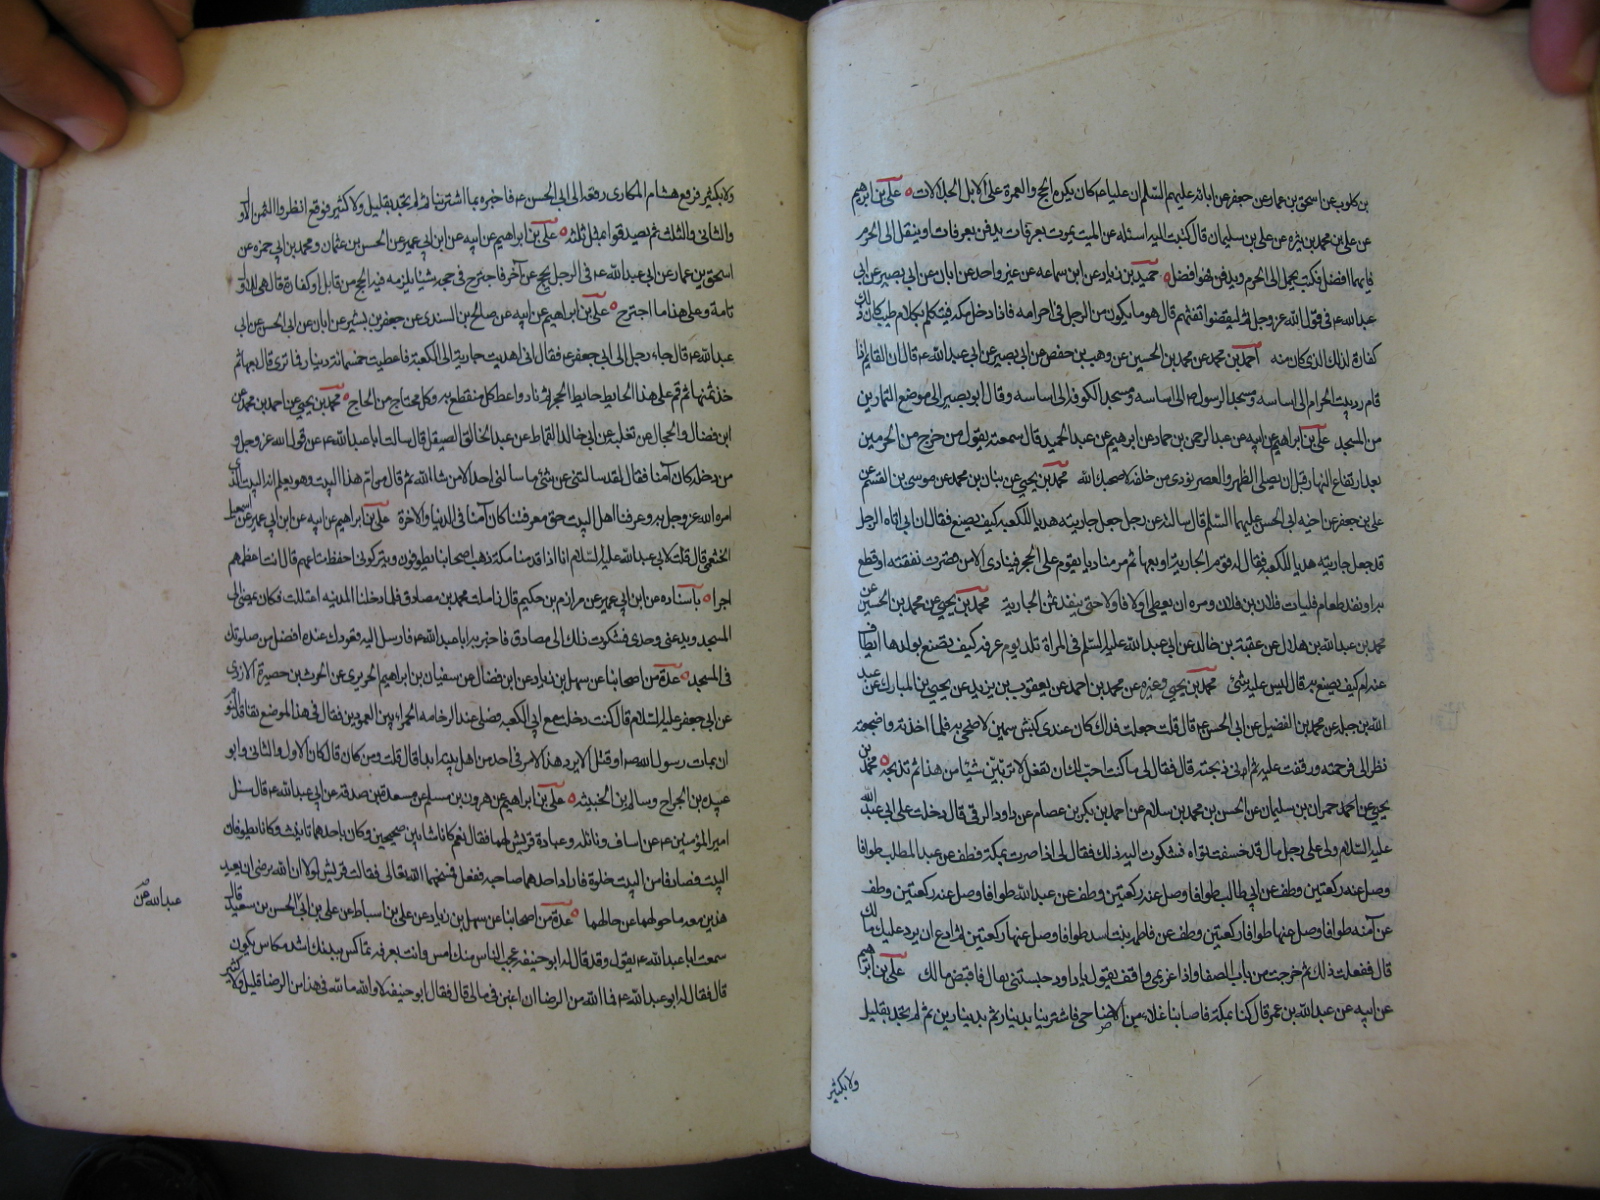 بن كلوب عن اسحق بن عمار عن جعفر عن ابائه عليهم السلم ان عليا ع كان يكره الحج والعمرة على الابل الجلالات علي بن ابرهيم
عن علي بن محمد بن عن علي بن سليمان قال كتبت اليه اسئله عن الميت يموت بعرفات يدفن بعرفات او ينقل الى الحرم
فايهما افضل فكتب يحمل الى الحرم ويدفن فهو افضل حميد بن زياد عن ابن سماعه عن غير واحد عن ابان عن ابي بصير عن ابي
عبد الله ع فى قول الله عز وجل ثم ليقضوا تفثهم قال هو ما يكون من الرجل فى احرامه فاذا دخل مكه فتكلم بكلام طيب كان ذلك
كفارة لذلك الذى كان منه احمد بن محمد عن محمد بن الحسين عن وهيب بن حفص عن ابي بصير عن ابي عبد الله ع قال ان القايم اذا
قام رد بيت الحرام الى اساسه ومسجد الرسول ص الى اساسه ومسجد الكوفه الى اساسه وقال ابو بصير الى موضع التمارين
من المسجد علي بن ابراهيم عن ابيه عن عبد الرحمن بن حماد عن ابرهيم عن عبد الحميد قال سمعته يقول من خرج من الحرمين
بعد ارتفاع النهار قبل ان يصلى الظهر والعصر نودى من خلفه لاصحبك الله محمد بن يحيي عن بنان بن محمد عن موسى بن القسم عن
علي بن جعفر عن اخيه ابي الحسن عليهما السلم قال سالته عن رجل جعل جاريته هديا للكعبه كيف يصنع فقال ان ابي اتاه الرجل
قد جعل جاريته هديا للكعبه فقال له قوم الجارية او بعها ثم مر مناديا يقوم على الحجر فينادى الا من قصرت نفقته او قطع
به او نفد طعامه فليات فلان بن فلان ومره ان يعطى اولا فاولا حتى ينفد ثمن الجارية محمد بن يحيي عن محمد بن الحسين عن
محمد بن عبد الله بن هلال عن عقبة بن خالد عن ابي عبد الله عليه السلم فى المراة تلد يوم عرفه كيف تصنع بولدها ايطاف
عنه ام كيف يصنع به قال ليس عليه شئ محمد بن يحيي وغيره عن محمد بن احمد عن يعقوب بن يزيد عن يحيي بن المبارك عن عبد
الله بن جبله عن محمد بن الفضيل عن ابي الحسن ع قال قلت جعلت فداك كان عندى كبش سمين لاضحى به فلما اخذته واضجعته
نظر الى فرحمته ورققت عليه ثم انى ذبحته قال فقال لى ما كنت احب لك ان تفعل لا تربين شيئا من هذا ثم تذبحه محمد بن
يحيي عن احمد حمران بن سليمان عن الحسن بن محمد بن سلام عن احمد بن بكر بن عصام عن داود الرقى قال دخلت على ابي عبد الله
عليه السلام ولى على رجل مال قد خفت تواه فشكوت اليه ذلك فقال لى اذا صرت بمكة فطف عن عبد المطلب طوافا
وصل عنه ركعتين وطف عن ابي طالب طوافا وصل عنه ركعتين وطف عن عبد الله طوافا وصل عنه ركعتين وطف
عن آمنه طوافا وصل عنها طوافا ركعتين وطف عن فاطمه بنت اسد طوافا وصل عنها ركعتين ثم ادع ان يرد عليك مالك
قال ففعلت ذلك ثم خرجت من باب الصفا واذا غريمى واقف يقول يا داود حبستنى تعال فاقبض مالك علي بن ابرهيم
عن ابيه عن عبد الله بن عمر قال كنا بمكة فاصابنا غلاء من الاضاحى فاشترينا بدينار ثم بدينارين ثم لم نجد بقليل
ولا بكثير
ولا بكثير فرفع هشام المكارى رقعه الى ابي الحسن ع فاخبره بما اشترينا ثم لم نجد بقليل ولا كثير فوقع انظروا الثمن الاول
والثانى والثلث ثم تصدقوا بمثل ثلثه علي بن ابراهيم عن ابيه عن ابن ابي عمير عن الحسن بن عثمان ومحمد بن ابي حمزه عن
اسحق بن عمار عن ابي عبد الله ع فى الرجل يحج عن آخر فاجترح فى حجه شيئا يلزمه فيه الحج من قابل او كفارة قال هى للاول
تامة وعلى هذا ما اجترح علي بن ابراهيم عن ابيه عن صالح بن السندى عن جعفر بن بشير عن ابان عن ابى الحسن عن ابى
عبد الله ع قال جاء رجل الى ابى جعفر ع فقال انى اهديت جارية الى الكعبة فاعطيت خمسمائة دينار فما ترى قال بعها ثم
خذ ثمنها ثم قم على هذا الحايط حايط الحجر ثم ناد واعط كل منقطع به وكل محتاج من الحاج محمد بن يحيي عن احمد بن محمد عن
ابن فضال والحجال عن ثعلبه عن ابي خالد القماط عن عبد الخالق الصيقل قال سالت ابا عبد الله ع عن قول الله عز وجل و
من دخله كان آمنا فقال لقد سالتنى عن شئ ما سالنى احد الا من شاء الله ثم قال من ام هذا البيت وهو يعلم انه البيت الذى
امره الله عز وجل به وعرفنا اهل البيت حق معرفتنا كان آمنا فى الدنيا والاخرة علي بن ابراهيم عن ابيه عن ابن ابي عمير عن اسمعيل
الخثعمي قال قلت لابي عبد الله عليه السلام انا اذا قدمنا مكة ذهب اصحابنا يطوفون ويتركونى احفظ متاعهم قال انت اعظمهم
اجرا باسناده عن ابن ابي عمير عن مرازم بن حكيم قال زاملت محمد بن مصادف فلما دخلنا المدينه اعتللت فكان يمضى الى
المسجد ويدعنى وحدى فشكوت ذلك الى مصادف فاخبر به ابا عبد الله ع فارسل اليه قعودك عنده افضل من صلوتك
فى المسجد عدة من اصحابنا عن سهل بن زياد عن ابن فضال عن سفيان بن ابراهيم الحريرى عن الحرث بن حصيرة الازدى
عن ابي جعفر عليه السلام قال كنت دخلت مع ابي الكعبه فصلى عند الرخامه الحمراء بين العمودين فقال فى هذا الموضع تعاقد القوم
ان مات رسول الله ص او قتل الا يرد هذا الامر فى احد من اهل بيته ابدا قال قلت ومن كان قال كان الاول والثانى وابو
عبيده بن الجراح وسالم بن الحبيبه علي بن ابراهيم عن هرون بن مسلم عن مسعدة بن صدقه عن ابي عبد الله ع قال سئل
امير المؤمنين ع عن اساف ونائله وعبادة قريش لهما فقال نعم كانا شابين صبيحين وكان باحدهما تانيث وكانا يطوفان
البيت فصادفا من البيت خلوة فاراد احدهما صاحبه ففعل فمسخهما الله تعالى فقالت قريش لولا ان الله رضى ان يعبد
هذين معه ما حولهما عن حالهما عدة من اصحابنا عن سهل بن زياد عن علي بن اسباط عن علي بن ابي الحسن بن سعيد قال
عبد الله عن
سمعت ابا عبد الله ع يقول وقد قال له ابو حنيفه عجب الناس منك امس وانت بعرفه تماكس ببدنك اشد مكاس يكون
قال فقال له ابو عبد الله ع فما الله من الرضا ان اغبن فى مالى قال فقال ابو حنيفه لا والله ما لله فى هذا من الرضا قليل ولا كثير